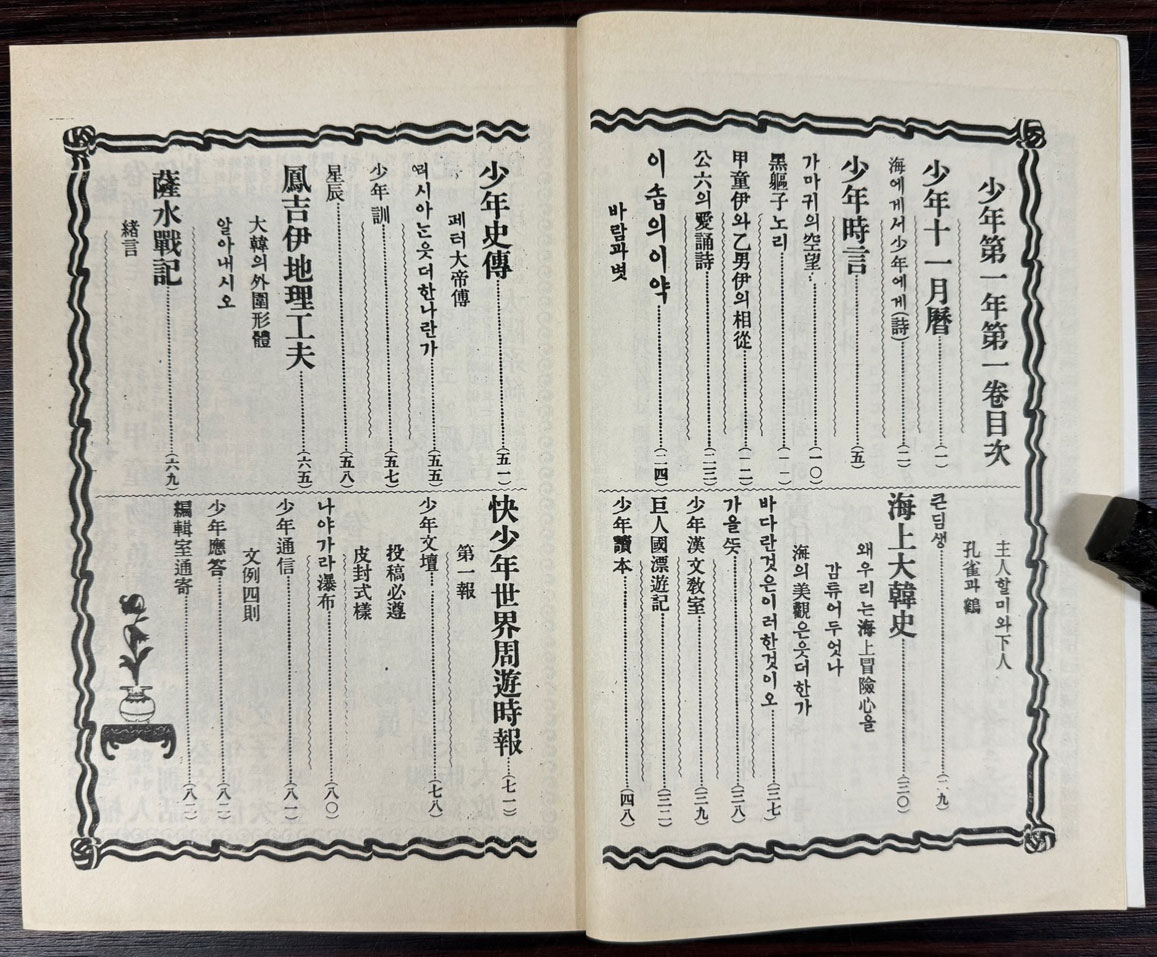 少年第一年第一卷目次
少年十一月曆(一)
海에게서少年에게(詩)(二)
少年時言(五)
가마귀의空望(一〇)
黑軀子노리(一一)
甲童伊와乙男伊의相從(一二)
公六의愛誦詩(二三)
이솝의이약(二四)
바람과볏
主人할미와下人
孔雀과鶴
큰딤생(二九)
海上大韓史(三〇)
왜우리는海上冒險心을
감튜어두엇나
海의美觀은웃더한가
바다란것은이러한것이오(三七)
가을ᄯᅳᆺ(三八)
少年漢文敎室(三九)
巨人國漂遊記(三二)
少年讀本(四八)
少年史傳(五一)
페터大帝傳
러시아는웃더한나란가(五五)
少年訓(五七)
星辰(五八)
鳳吉伊地理工夫(六五)
大韓의外圍形體
알아내시오
薩水戰記(六九)
緖言
快少年世界周遊時報(七一)
第一報
少年文壇(七八)
投稿必遵
皮封式樣
나야가라瀑布(八〇)
少年通信(八一)
文例四則
少年應答(八二)
編輯室通寄(八二)